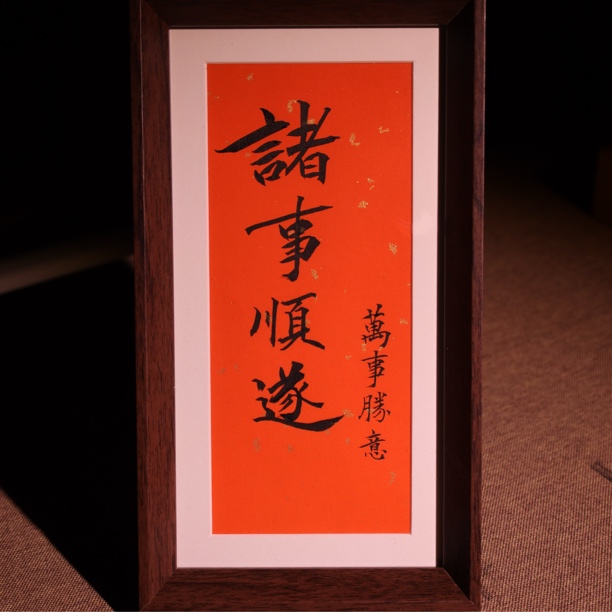 諸事順遂
萬事勝意